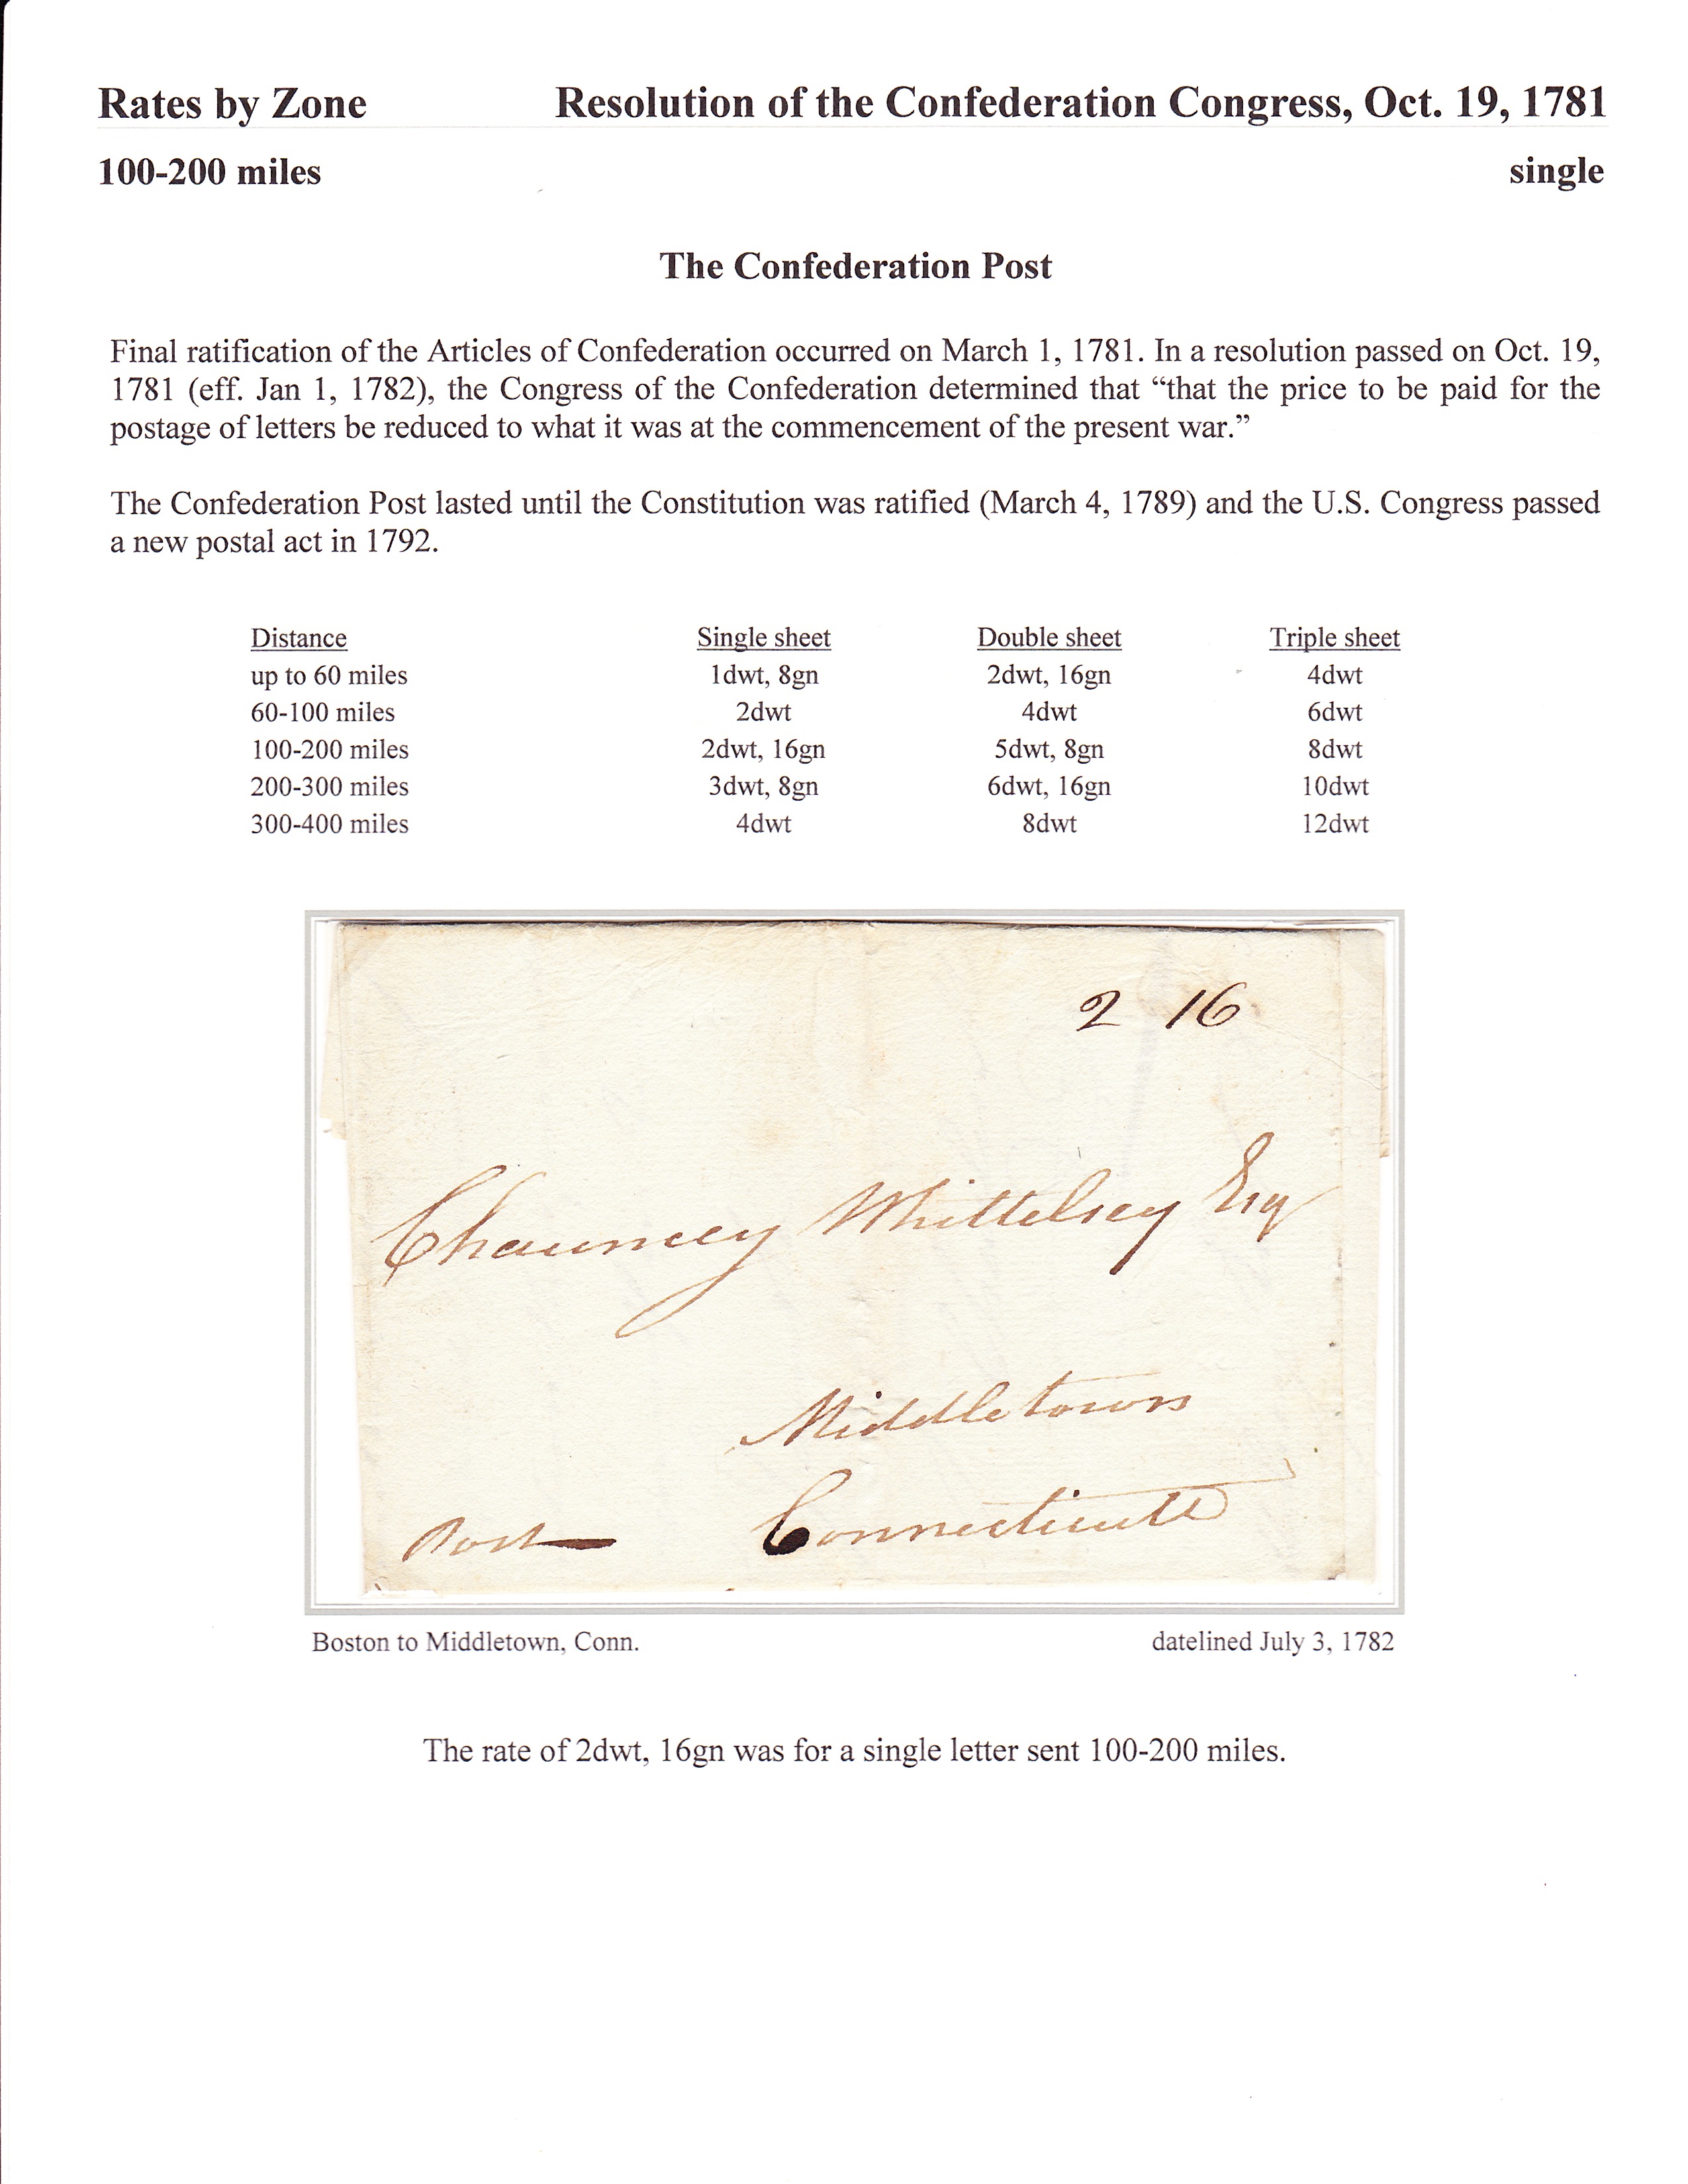 Rates by Zone Resolution of the Confederation Congress, Oct. 19, 1781
100-200 miles single
The Confederation Post
Final ratification of the Articles of Confederation occurred on March 1, 1781. In a resolution passed on Oct. 19,
1781 (eff. Jan 1, 1782), the Congress of the Confederation determined that “that the price to be paid for the
postage of letters be reduced to what it was at the commencement of the present war.”
The Confederation Post lasted until the Constitution was ratified (March 4, 1789) and the U.S. Congress passed
a new postal act in 1792.
Distance Single sheet Double sheet Triple sheet
up to 60 miles 1dwt, 8gn 2dwt, 16gn 4dwt
60-100 miles 2dwt 4dwt 6dwt
100-200 miles 2dwt, 16gn 5dwt, 8gn 8dwt
200-300 miles 3dwt, 8gn 6dwt, 16gn 10dwt
300-400 miles 4dwt 8dwt 12dwt
2 16
Chauncey Whittelsey Esq
Middletown
Post Connecticutt
Boston to Middletown, Conn. datelined July 3, 1782
The rate of 2dwt, 16gn was for a single letter sent 100-200 miles.